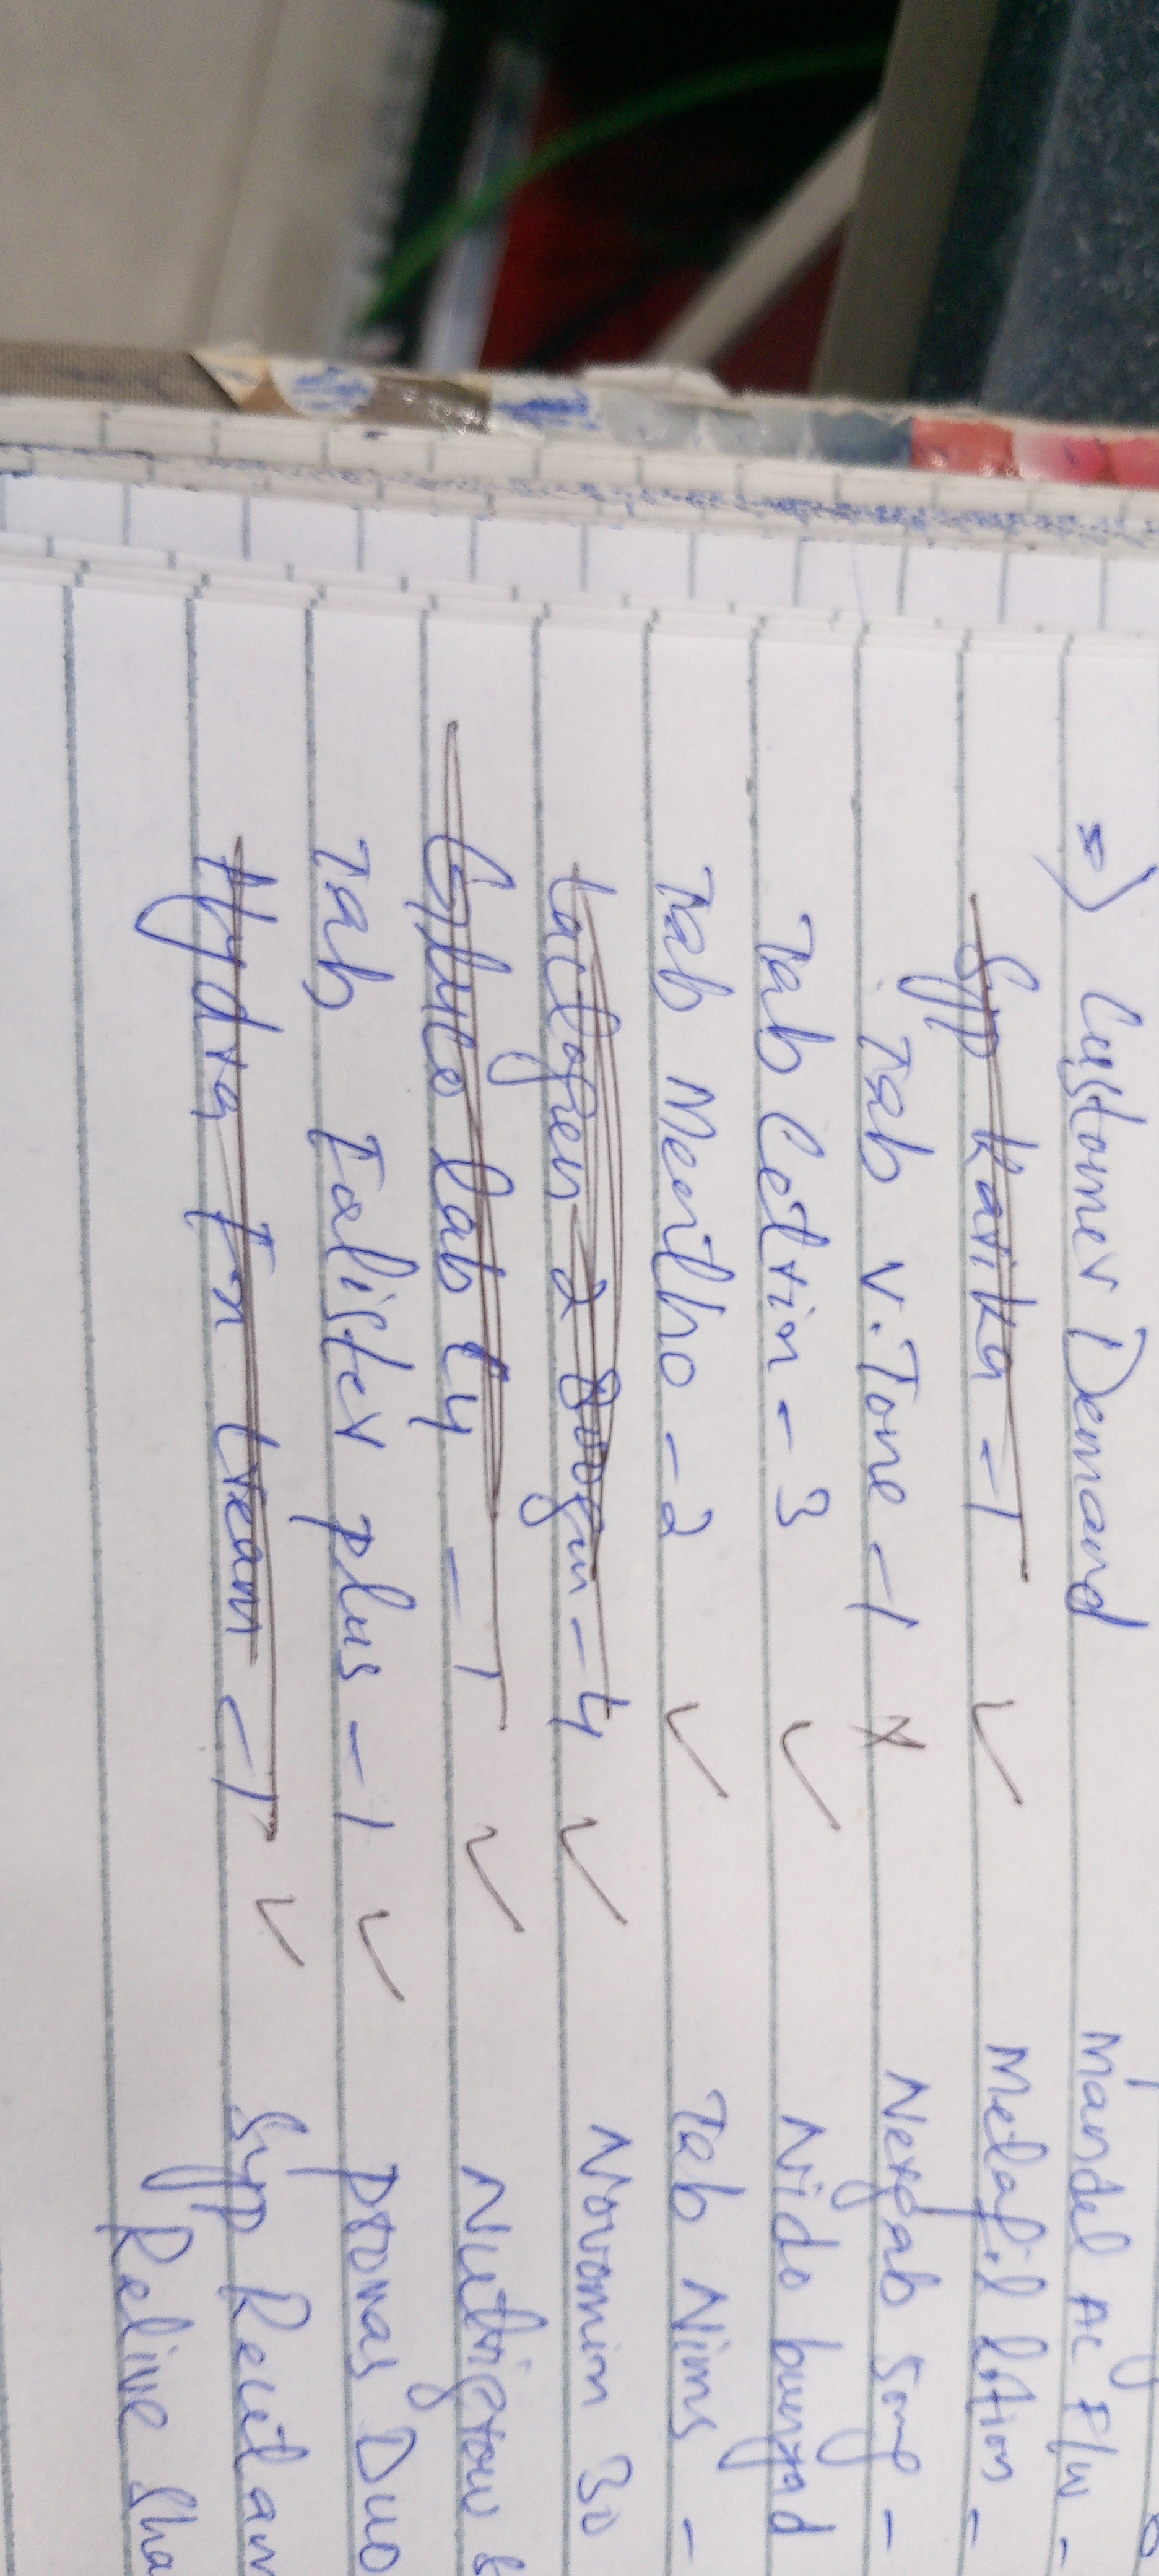 => Customer Demand
Syp Karika - 1 ✓
Tab V.Tone - 1 x
Tab Cetrin - 3 ✓
Tab Meritho - 2 ✓
Lactogen 2 800gm - 4 ✓
Gluco Lab - 1 ✓
Tab Falister plus - 1 ✓
Hydra Fx cream - 1 ✓
Mandel AC F/w -
Metafil lotion -
Nexgab 50mg -
Nido bunyad
Tab Nims -
Novomin 30
Nutrigrow
Provas Duo
Syp
Relive Sha